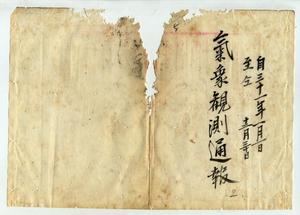 自三十一年一月一日
至仝 十二月三十一日
氣象観測通報